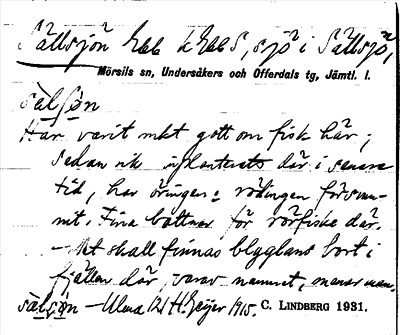 Sällsjön Ekbl K Ekbl S, sjö i Sällsjö,
Mörsils sn, Undersåkers och Offerdals tg, Jämtl. l.
sälʃön
Har varit mkt gott om fisk här;
Sedan sik inplanterats där i senare
tid, har öringen o rödingen försvun-
nit. Fina bottnar för rörfiske där.
– Det skall finnas blyglans bort i
fjällen där, varav namnet, menar man.
sälʃön – Ulma 121 H. Geijer 1915. C. LINDBERG 1931.